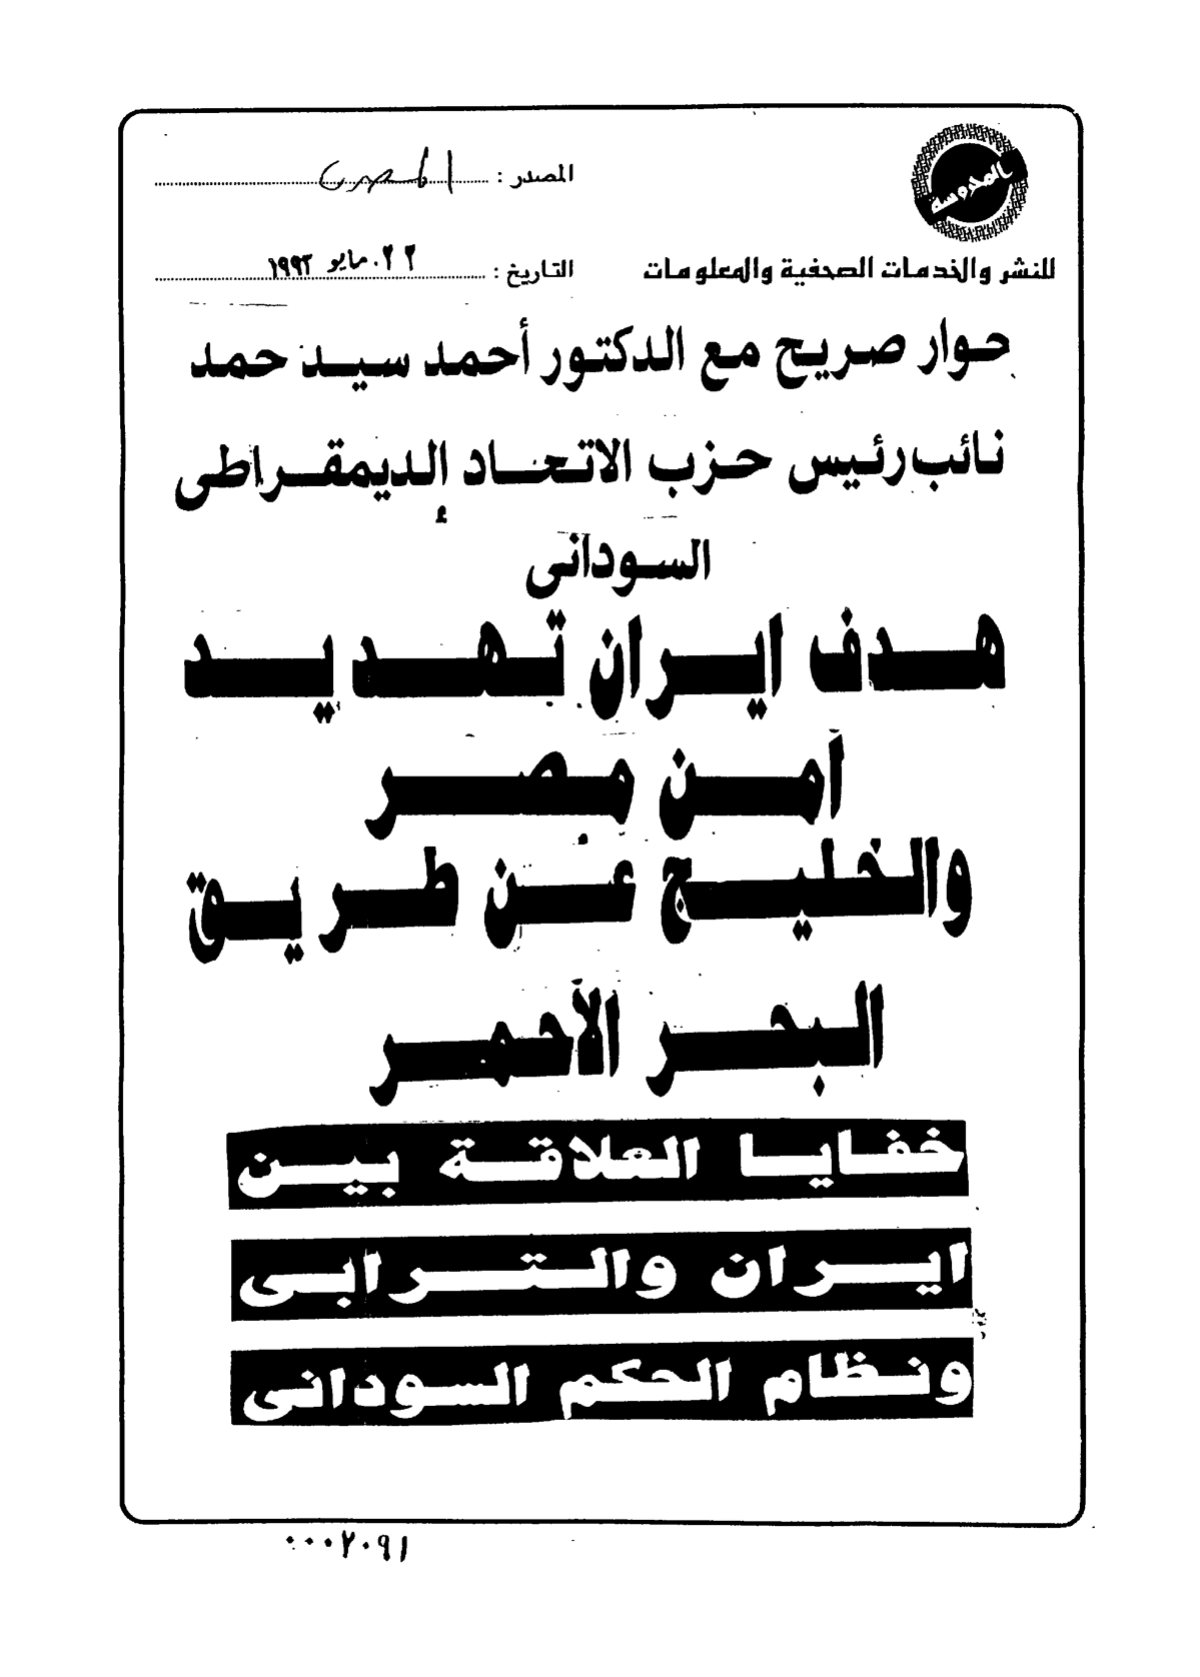 المدروسة
المصدر : المصرى
للنشر والخدمات الصحفية والمعلومات
التاريخ : ٢٢ مايو ١٩٩٢
حوار صريح مع الدكتور أحمد سيد حمد
نائب رئيس حزب الاتحاد الديمقراطى
السودانى
هدف ايران تهديد
أمن مصر
والخليج عن طريق
البحر الأحمر
خفايا العلاقة بين
ايران والترابى
ونظام الحكم السودانى
٠٠٠٢٠٩١